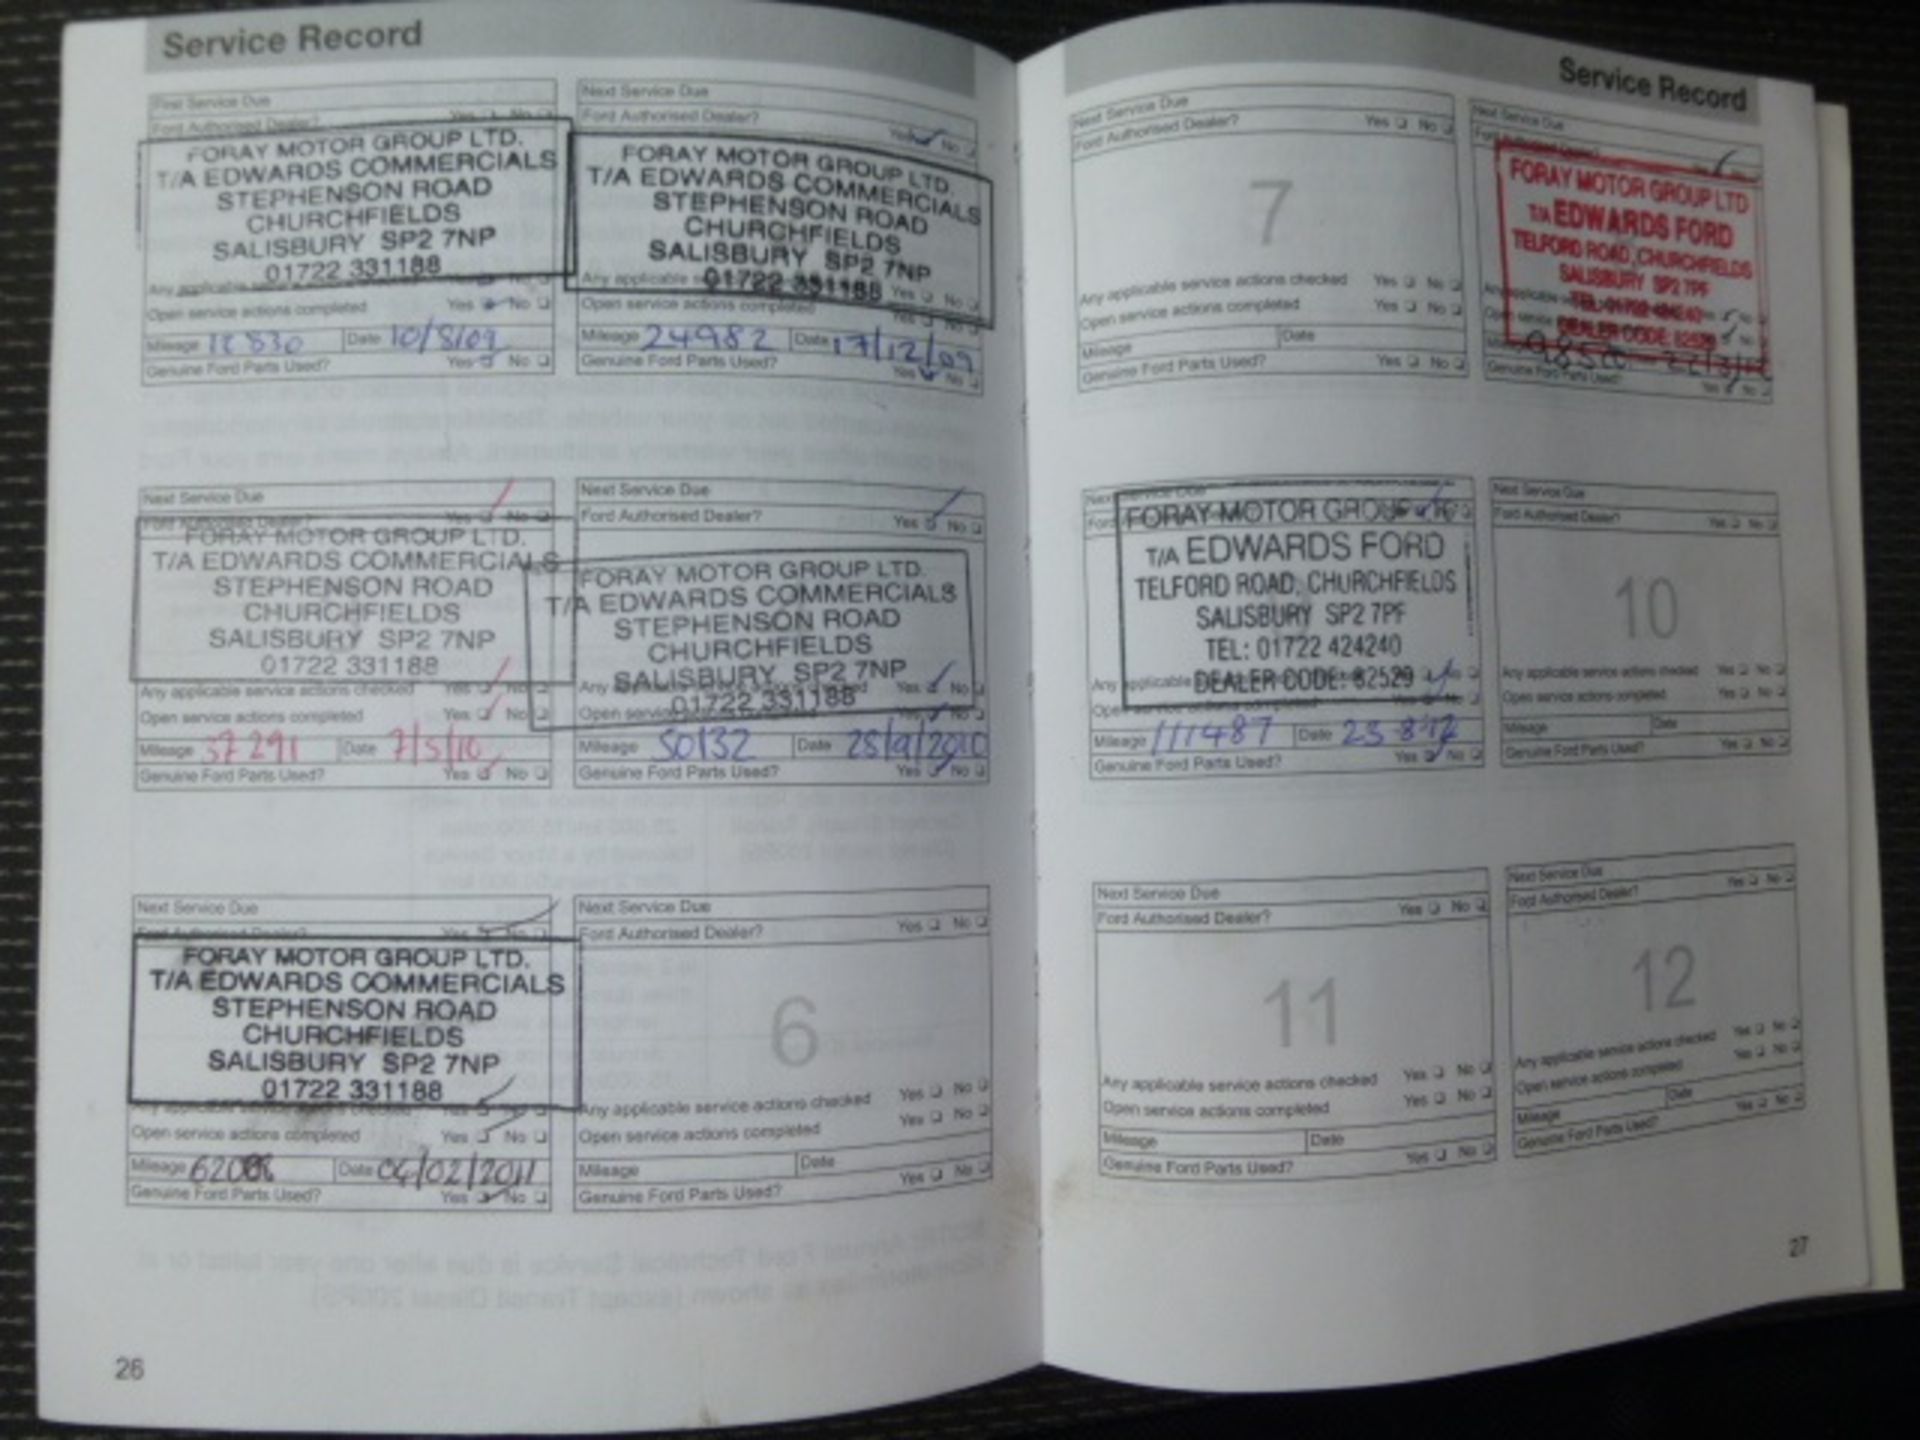 Service Record
First Service Due
Ford Authorised Dealer? Yes No
FORAY MOTOR GROUP LTD.
T/A EDWARDS COMMERCIALS
STEPHENSON ROAD
CHURCHFIELDS
SALISBURY SP2 7NP
01722 331188
Any applicable
Open service actions completed Yes No
Mileage 12830 Date 10/8/09
Genuine Ford Parts Used? Yes No
Next Service Due
Ford Authorised Dealer? Yes No
FORAY MOTOR GROUP LTD.
T/A EDWARDS COMMERCIALS
STEPHENSON ROAD
CHURCHFIELDS
SALISBURY SP2 7NP
01722 331188
Any applicable Yes No
Open service actions completed Yes No
Mileage 24982 Date 17/12/09
Genuine Ford Parts Used? Yes No
Next Service Due
Ford Authorised Dealer? Yes No
FORAY MOTOR GROUP LTD.
T/A EDWARDS COMMERCIALS
STEPHENSON ROAD
CHURCHFIELDS
SALISBURY SP2 7NP
01722 331188
Any applicable service actions checked Yes No
Open service actions completed Yes No
Mileage 37291 Date 7/5/10
Genuine Ford Parts Used? Yes No
Next Service Due
Ford Authorised Dealer? Yes No
FORAY MOTOR GROUP LTD.
T/A EDWARDS COMMERCIALS
STEPHENSON ROAD
CHURCHFIELDS
SALISBURY SP2 7NP
01722 331188
Any applicable Yes No
Open service actions completed Yes No
Mileage 50132 Date 28/9/2010
Genuine Ford Parts Used? Yes No
Next Service Due
Ford Authorised Dealer? Yes No
FORAY MOTOR GROUP LTD.
T/A EDWARDS COMMERCIALS
STEPHENSON ROAD
CHURCHFIELDS
SALISBURY SP2 7NP
01722 331188
Any applicable service actions checked Yes No
Open service actions completed Yes No
Mileage Date 04/02/2011
Genuine Ford Parts Used? Yes No
Next Service Due
Ford Authorised Dealer? Yes No
6
Any applicable service actions checked Yes No
Open service actions completed Yes No
Mileage Date
Genuine Ford Parts Used? Yes No
26
Service Record
Next Service Due
Ford Authorised Dealer? Yes No
7
Any applicable service actions checked Yes No
Open service actions completed Yes No
Mileage Date
Genuine Ford Parts Used? Yes No
Next Service Due
FORAY MOTOR GROUP LTD
T/A EDWARDS FORD
TELFORD ROAD, CHURCHFIELDS
SALISBURY SP2 7PF
TEL: 01722 424240
DEALER CODE: 82529
Genuine Ford Parts Used? Yes No
Next Service Due
FORAY MOTOR GROUP
T/A EDWARDS FORD
TELFORD ROAD, CHURCHFIELDS
SALISBURY SP2 7PF
TEL: 01722 424240
DEALER CODE: 82529
Any applicable
Open service actions completed
Mileage 111487 Date 23-8-12
Genuine Ford Parts Used? Yes No
Next Service Due
Ford Authorised Dealer? Yes No
10
Any applicable service actions checked Yes No
Open service actions completed Yes No
Mileage Date
Genuine Ford Parts Used? Yes No
Next Service Due
Ford Authorised Dealer? Yes No
11
Any applicable service actions checked Yes No
Open service actions completed Yes No
Mileage Date
Genuine Ford Parts Used? Yes No
Next Service Due
Ford Authorised Dealer? Yes No
12
Any applicable service actions checked Yes No
Open service actions completed Yes No
Mileage Date
Genuine Ford Parts Used? Yes No
27